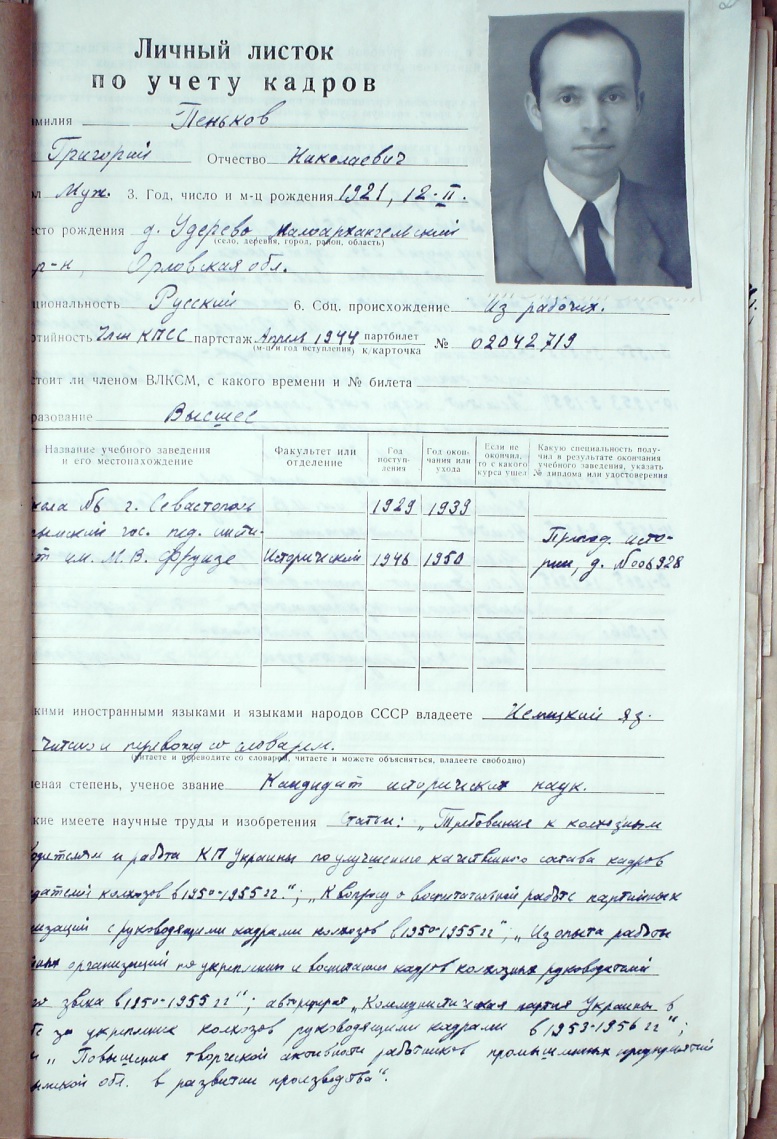 Личный листок
по учету кадров
милия Пеньков
Григорий Отчество Николаевич
л Муж. 3. Год, число и м-ц рождения 1921, 12-II.
сто рождения д. Удерево Малоархангельский
(село, деревня, город, район, область)
р-н, Орловская обл.
циональность Русский 6. Соц. происхождение Из рабочих.
ртийность Член КПСС партстаж Апрель 1944 партбилет № 02042719
(м-ц и год вступления) к/карточка
стоит ли членом ВЛКСМ, с какого времени и № билета
разование Высшее
Название учебного заведения и его местонахождение
Факультет или отделение
Год поступления
Год окончания или ухода
Если не окончил, то с какого курса ушел
Какую специальность получил в результате окончания учебного заведения, указать № диплома или удостоверения
кола №6 г. Севастополь 1929 1939
ымский гос. пед. инсти-
т им. М. В. Фрунзе Исторический 1946 1950 Препод. исто-
рии, д. № 006928
кими иностранными языками и языками народов СССР владеете Немецкий яз.
читаю и перевожу со словарем.
(читаете и переводите со словарем, читаете и можете объясняться, владеете свободно)
еная степень, ученое звание Кандидат исторических наук.
кие имеете научные труды и изобретения Статьи: „Требования к колхозным
одителям и работа КП Украины по улучшению качественного состава кадров
дателей колхозов в 1950-1955 гг."; „К вопросу о воспитательной работе партийных
изаций с руководящими кадрами колхозов в 1950-1955 гг"; „Из опыта работы
йных организаций по укреплению и воспитанию кадров колхозных руководителей
го звена в 1950-1955 гг"; автореферат „Коммунистическая партия Украины в
е за укрепление колхозов руководящими кадрами в 1953-1956 гг";
и „Повышение творческой активности работников промышленных предприятий
ымской обл. в развитии производства".